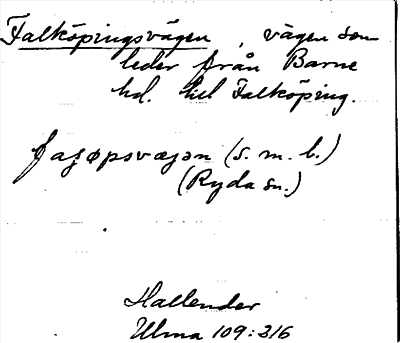 Falköpingsvägen, vägen som
leder från Barne
hd. till Falköping.
fagøpsvægən (s. m. b.)
(Ryda sn.)
Hallender
Ulma 109:316